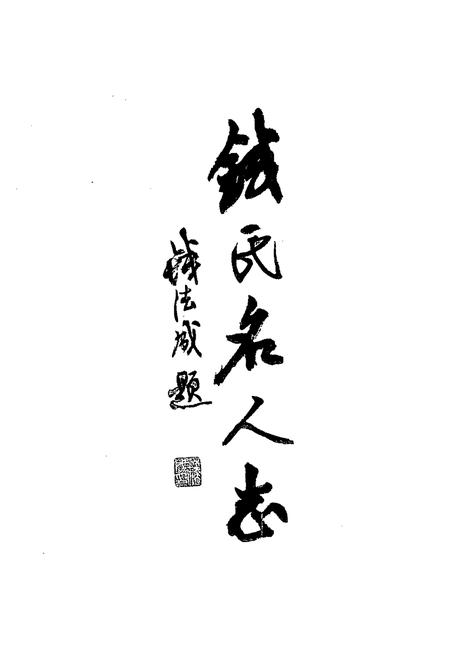 錢氏名人志
錢法成題